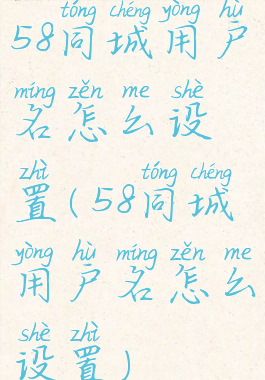 tóng chéng yòng hù
58同城用户
míng zěn me shè
名怎么设
zhì tóng chéng
置(58同城
yòng hù míng zěn me
用户名怎么
shè zhì
设置)